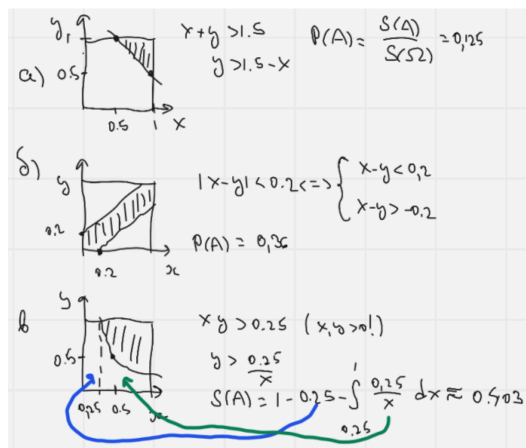 а)
y
1
0.5
0.5
1
x
x+y>1.5
y>1.5-x
P(A) = S(A)/S(Ω) = 0,125
б)
y
0.2
0.2
x
|x-y|<0.2<=> { x-y<0,2
x-y>-0.2
P(A) = 0,36
в
y
0.5
0,25
0.5
x
xy>0.25 (x,y>0!)
y > 0.25/x
S(A) = 1 - 0.25 - ∫ 0,25/x dx ≈ 0.403
1
0.25